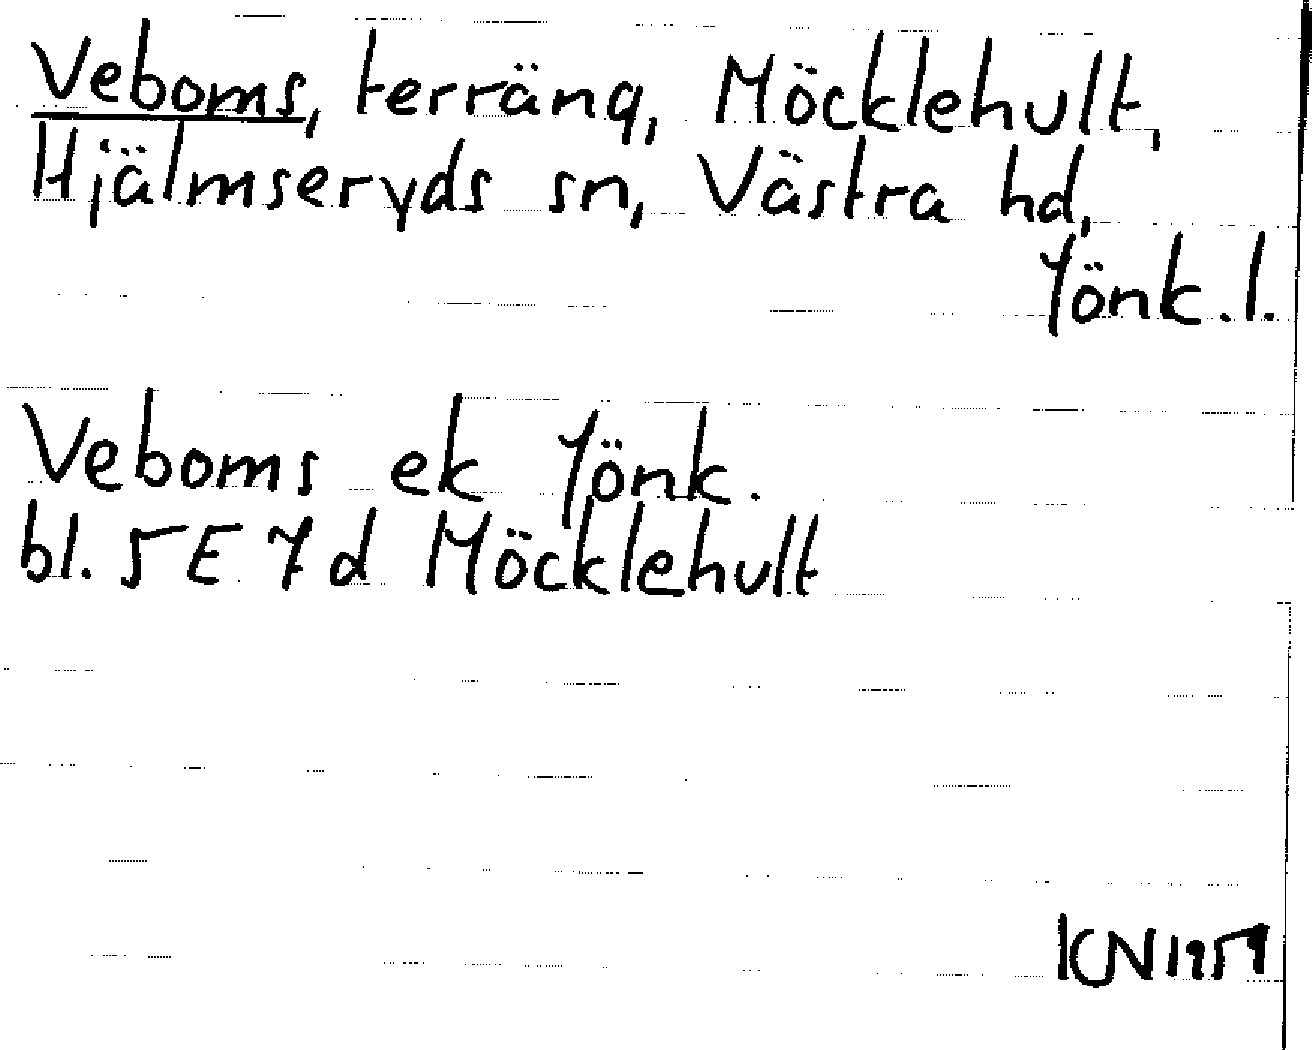 Veboms, terräng, Möcklehult,
Hjälmseryds sn, Västra hd,
Jönk. l.
Veboms ek Jönk.
bl. 5 E 7 d Möcklehult
KN 1959